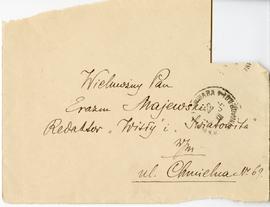 Wielmożny Pan
Erazm Majewski
Redaktor „Wisły" i „Światowita"
w/m
ul. Chmielna № 69